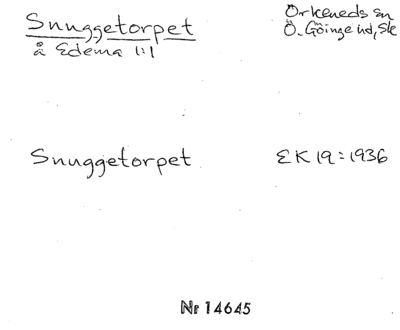 Snuggetorpet
å Edema 1:1
Örkeneds sn
Ö. Göinge hd, Sk
Snuggetorpet
EK 19 : 1936
Nr 14645